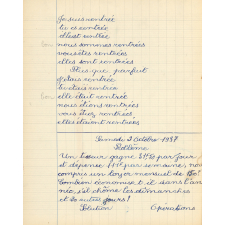 Je suis rentrée
tu es rentrée
elle est rentrée
nous sommes rentrées
vous êtes rentrées
elles sont rentrées
Plus-que-parfait
J'étais rentrée
tu étais rentrée
elle était rentrée
nous étions rentrées
vous étiez rentrées
elles étaient rentrées
Samedi 2 octobre 1937
Problème
Un tisseur gagne par jour
et dépense par semaine, non
compris son loyer mensuel de
Combien économise-t-il dans l'an
née, s'il chôme les dimanches
et autres jours ?
Solution Opérations